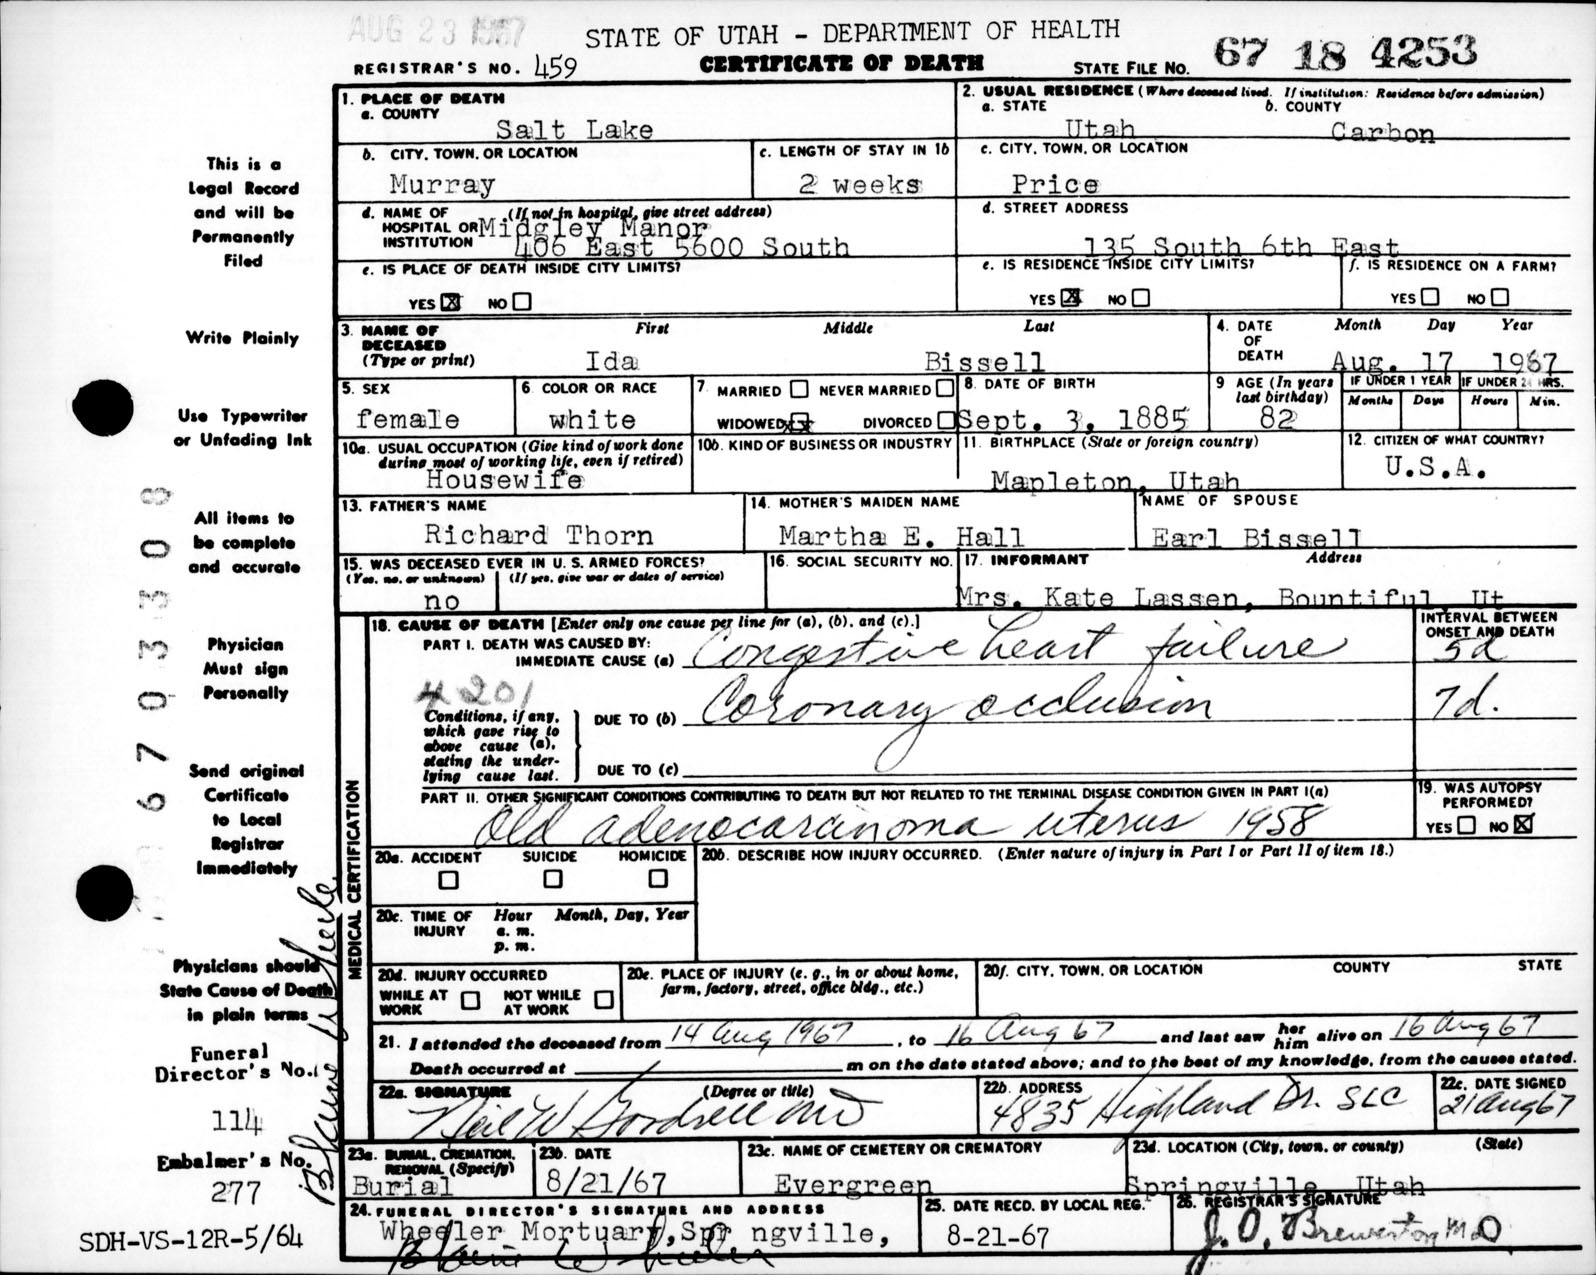 AUG 23 1967
STATE OF UTAH - DEPARTMENT OF HEALTH
REGISTRAR'S NO. 459
CERTIFICATE OF DEATH
STATE FILE NO. 67 18 4253
1. PLACE OF DEATH
a. COUNTY
Salt Lake
2. USUAL RESIDENCE (Where deceased lived. If institution: Residence before admission)
a. STATE b. COUNTY
Utah Carbon
b. CITY, TOWN, OR LOCATION
Murray
c. LENGTH OF STAY IN 1b
2 weeks
c. CITY, TOWN, OR LOCATION
Price
d. NAME OF HOSPITAL OR INSTITUTION (If not in hospital, give street address)
Midgley Manor
406 East 5600 South
d. STREET ADDRESS
135 South 6th East
e. IS PLACE OF DEATH INSIDE CITY LIMITS?
YES ☒ NO ☐
e. IS RESIDENCE INSIDE CITY LIMITS?
YES ☒ NO ☐
f. IS RESIDENCE ON A FARM?
YES ☐ NO ☐
3. NAME OF DECEASED (Type or print)
First Middle Last
Ida Bissell
4. DATE OF DEATH
Month Day Year
Aug. 17 1967
5. SEX
female
6 COLOR OR RACE
white
7. MARRIED ☐ NEVER MARRIED ☐
WIDOWED ☒ DIVORCED ☐
8. DATE OF BIRTH
Sept. 3, 1885
9 AGE (In years last birthday)
82
IF UNDER 1 YEAR
Months Days
IF UNDER 24 HRS.
Hours Min.
10a. USUAL OCCUPATION (Give kind of work done during most of working life, even if retired)
Housewife
10b. KIND OF BUSINESS OR INDUSTRY
11. BIRTHPLACE (State or foreign country)
Mapleton, Utah
12. CITIZEN OF WHAT COUNTRY?
U.S.A.
13. FATHER'S NAME
Richard Thorn
14. MOTHER'S MAIDEN NAME
Martha E. Hall
NAME OF SPOUSE
Earl Bissell
15. WAS DECEASED EVER IN U. S. ARMED FORCES?
(Yes, no, or unknown) (If yes, give war or dates of service)
no
16. SOCIAL SECURITY NO.
17. INFORMANT Address
Mrs. Kate Lassen, Bountiful Ut
MEDICAL CERTIFICATION
18. CAUSE OF DEATH [Enter only one cause per line for (a), (b), and (c).]
INTERVAL BETWEEN ONSET AND DEATH
PART I. DEATH WAS CAUSED BY:
IMMEDIATE CAUSE (a) Congestive heart failure 5d
4201
Conditions, if any, which gave rise to above cause (a), stating the underlying cause last.
DUE TO (b) Coronary occlusion 7d.
DUE TO (c)
PART II. OTHER SIGNIFICANT CONDITIONS CONTRIBUTING TO DEATH BUT NOT RELATED TO THE TERMINAL DISEASE CONDITION GIVEN IN PART I(a)
Old adenocarcinoma uterus 1958
19. WAS AUTOPSY PERFORMED?
YES ☐ NO ☒
20a. ACCIDENT SUICIDE HOMICIDE
☐ ☐ ☐
20b. DESCRIBE HOW INJURY OCCURRED. (Enter nature of injury in Part I or Part II of item 18.)
20c. TIME OF INJURY
Hour Month, Day, Year
a. m.
p. m.
20d. INJURY OCCURRED
WHILE AT WORK ☐ NOT WHILE AT WORK ☐
20e. PLACE OF INJURY (e. g., in or about home, farm, factory, street, office bldg., etc.)
20f. CITY, TOWN, OR LOCATION COUNTY STATE
21. I attended the deceased from 14 Aug 1967, to 16 Aug 67 and last saw her him alive on 16 Aug 67
Death occurred at m on the date stated above; and to the best of my knowledge, from the causes stated.
22a. SIGNATURE (Degree or title)
Neil W MD
22b. ADDRESS
4835 Highland Dr. SLC
22c. DATE SIGNED
21 Aug 67
23a. BURIAL, CREMATION, REMOVAL (Specify)
Burial
23b. DATE
8/21/67
23c. NAME OF CEMETERY OR CREMATORY
Evergreen
23d. LOCATION (City, town, or county) (State)
Springville Utah
24. FUNERAL DIRECTOR'S SIGNATURE AND ADDRESS
Wheeler Mortuary, Spr ngville,
Blaine W Wheeler
25. DATE RECD. BY LOCAL REG.
8-21-67
26. REGISTRAR'S SIGNATURE
J. O. Brewerton MD
This is a
Legal Record
and will be
Permanently
Filed
Write Plainly
Use Typewriter
or Unfading Ink
All items to
be complete
and accurate
Physician
Must sign
Personally
Send original
Certificate
to Local
Registrar
Immediately
Physicians should
State Cause of Death
in plain terms
Funeral
Director's No.
114
Embalmer's No.
277
Blaine W Wheeler
SDH-VS-12R-5/64